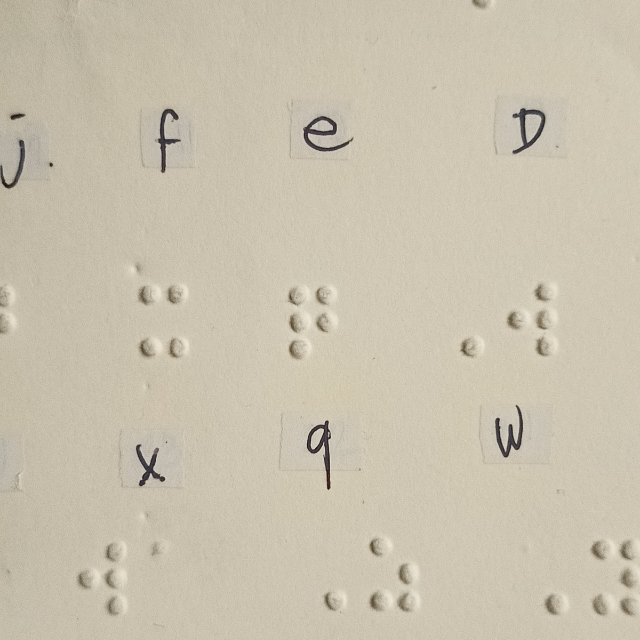 j f e D
⠭ ⠟ ⠠⠺
x q W
⠺ ⠠⠵ ⠠⠽